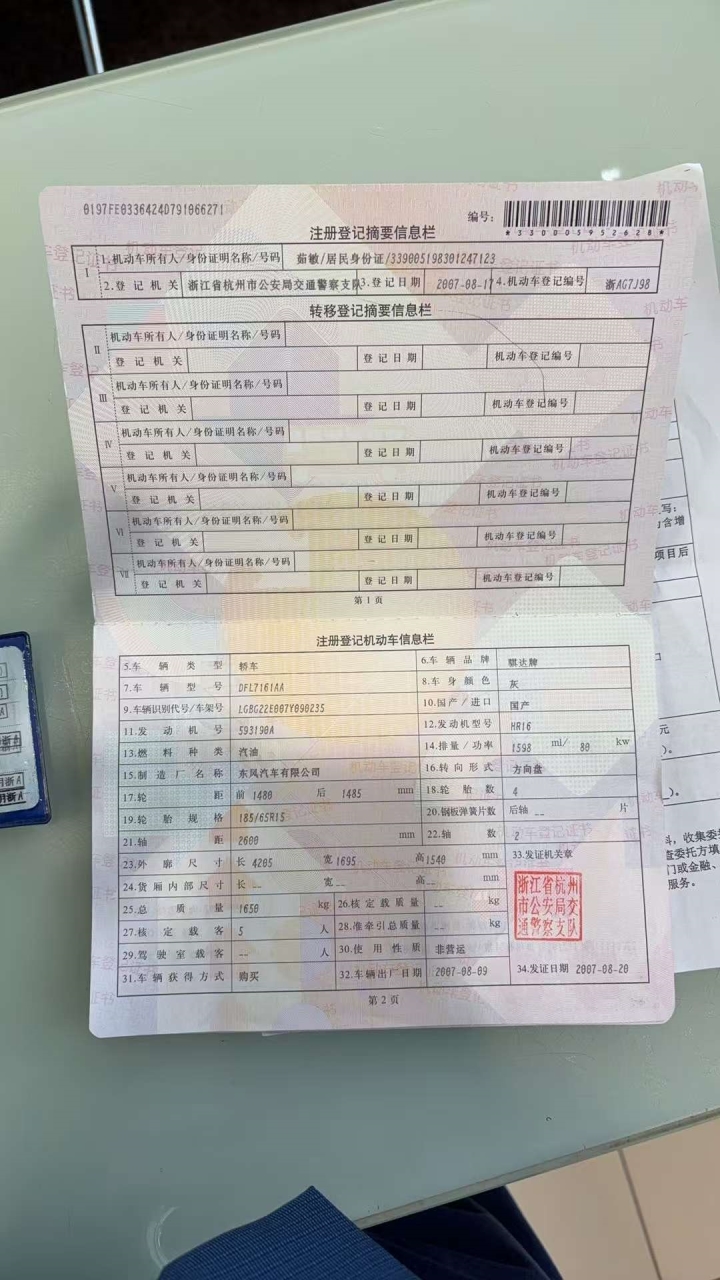 0197FE0336424D791866271
编号:
*330005952628*
注册登记摘要信息栏
Ⅰ 1.机动车所有人/身份证明名称/号码 茹敏/居民身份证/339005198301247123
2.登记机关 浙江省杭州市公安局交通警察支队 3.登记日期 2007-08-17 4.机动车登记编号 浙AG7J98
转移登记摘要信息栏
Ⅱ 机动车所有人/身份证明名称/号码
登记机关 登记日期 机动车登记编号
Ⅲ 机动车所有人/身份证明名称/号码
登记机关 登记日期 机动车登记编号
Ⅳ 机动车所有人/身份证明名称/号码
登记机关 登记日期 机动车登记编号
Ⅴ 机动车所有人/身份证明名称/号码
登记机关 登记日期 机动车登记编号
Ⅵ 机动车所有人/身份证明名称/号码
登记机关 登记日期 机动车登记编号
Ⅶ 机动车所有人/身份证明名称/号码
登记机关 登记日期 机动车登记编号
第1页
注册登记机动车信息栏
5.车辆类型 轿车 6.车辆品牌 骐达牌
7.车辆型号 DFL7161AA 8.车身颜色 灰
9.车辆识别代号/车架号 LGBG22E007Y090235 10.国产/进口 国产
11.发动机号 593190A 12.发动机型号 HR16
13.燃料种类 汽油 14.排量/功率 1598 ml/ 80 kw
15.制造厂名称 东风汽车有限公司 16.转向形式 方向盘
17.轮距 前 1480 后 1485 mm 18.轮胎数 4
19.轮胎规格 185/65R15 20.钢板弹簧片数 后轴 -- 片
21.轴距 2600 mm 22.轴数 2
23.外廓尺寸 长 4205 宽 1695 高 1540 mm 33.发证机关章
24.货厢内部尺寸 长 -- 宽 -- 高 -- mm
25.总质量 1650 kg 26.核定载质量 -- kg
27.核定载客 5 人 28.准牵引总质量 -- kg
29.驾驶室载客 -- 人 30.使用性质 非营运
31.车辆获得方式 购买 32.车辆出厂日期 2007-08-09 34.发证日期 2007-08-20
浙江省杭州
市公安局交
通警察支队
第2页
写:
含增
项目后
元
料，收集委
查委托方填
门或金融、
服务。